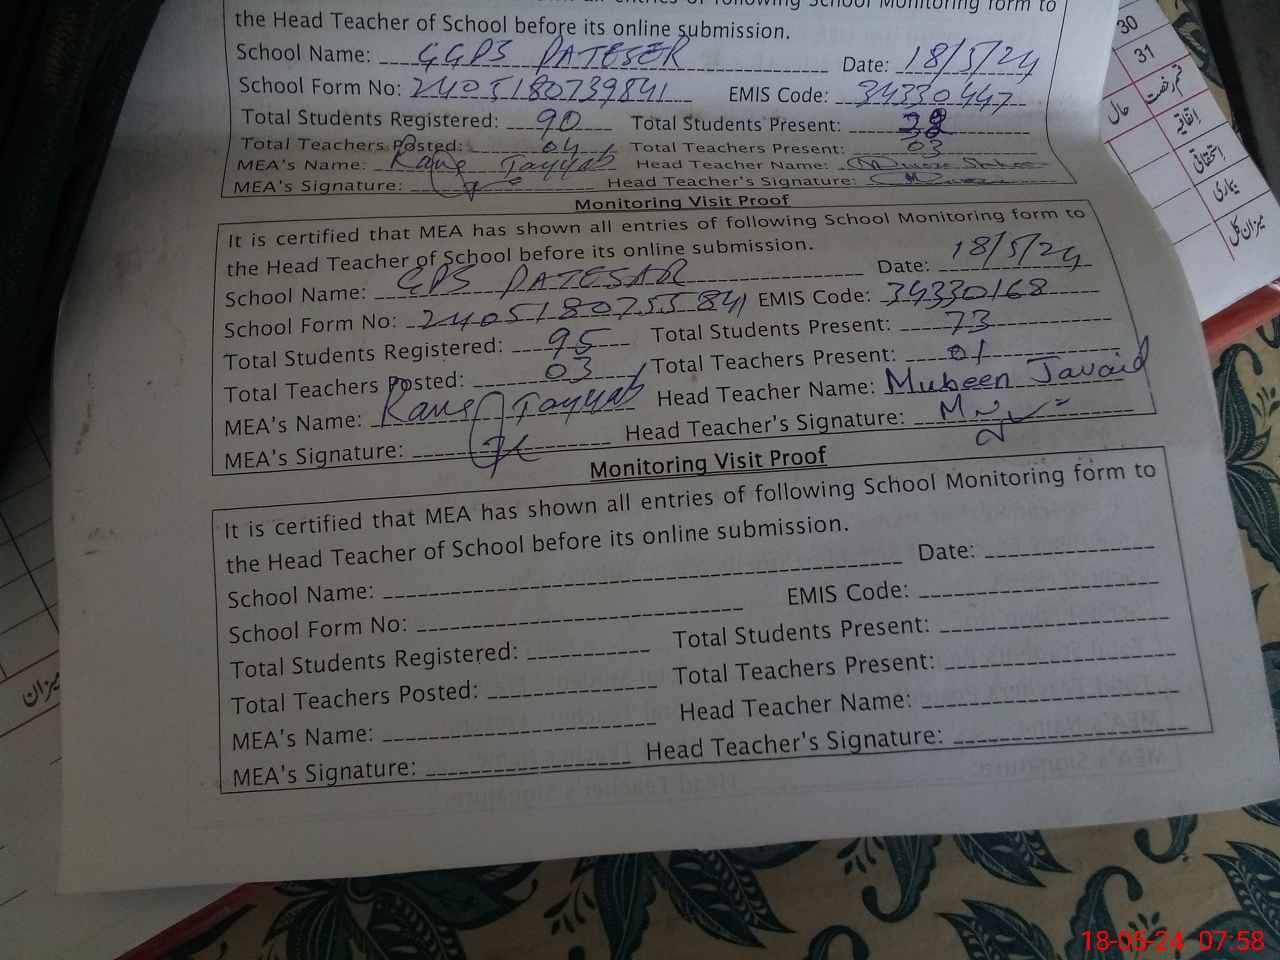 all entries of following School Monitoring form to
the Head Teacher of School before its online submission.
School Name: GGPS PATESER Date: 18/5/24
School Form No: 2405180739841 EMIS Code: 34330447
Total Students Registered: 90 Total Students Present:
Total Teachers Posted: 04 Total Teachers Present: 03
MEA's Name: Rana Tayyab Head Teacher Name:
MEA's Signature: Head Teacher's Signature:
Monitoring Visit Proof
It is certified that MEA has shown all entries of following School Monitoring form to
the Head Teacher of School before its online submission.
School Name: GPS PATESAR Date: 18/5/24
School Form No: 2405180755841 EMIS Code: 34330168
Total Students Registered: 95 Total Students Present: 73
Total Teachers Posted: 03 Total Teachers Present: 01
MEA's Name: Rana Tayyab Head Teacher Name: Mubeen Javaid
MEA's Signature: Head Teacher's Signature:
Monitoring Visit Proof
It is certified that MEA has shown all entries of following School Monitoring form to
the Head Teacher of School before its online submission.
School Name: Date:
School Form No: EMIS Code:
Total Students Registered: Total Students Present:
Total Teachers Posted: Total Teachers Present:
MEA's Name: Head Teacher Name:
MEA's Signature: Head Teacher's Signature:
30
31
حال
اتفاقیہ
استحقاقی
بیماری
میزان کل
میزان
18-05-24 07:58